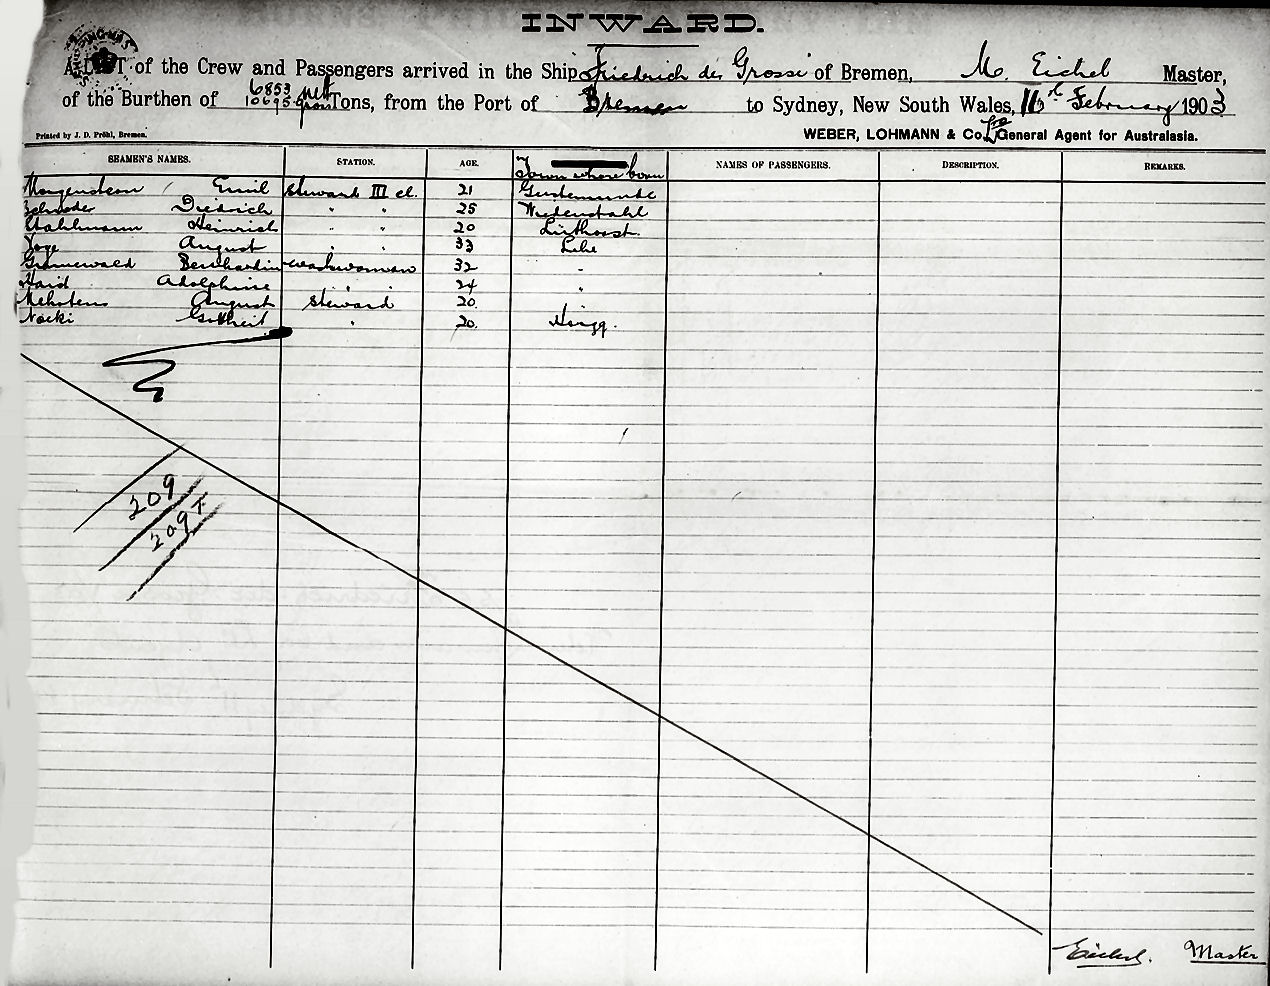 INWARD.
A LIST of the Crew and Passengers arrived in the Ship Friedrich der Grosse of Bremen, M. Eichel Master,
of the Burthen of 6853 nett 10695 gross Tons, from the Port of Bremen to Sydney, New South Wales, 11th February 1903
Printed by J. D. Pröhl, Bremen.
WEBER, LOHMANN & Co. Ltd General Agent for Australasia.
SEAMEN'S NAMES. STATION. AGE. Town where born NAMES OF PASSENGERS. DESCRIPTION. REMARKS.
Morgenstern Emil Steward III cl. 21 Geestemünde
Schroder Diedrich " " 25 Wiedenstahl
Stahlmann Heinrich " " 20 Lüthorst
August " " 33 Lehe
Grünewald Bernhardine washwoman 32 "
Haid Adolphine " " 24 "
Mehrtens August Steward 20 "
Nocki " 20.
209
209 +
Eichel. Master